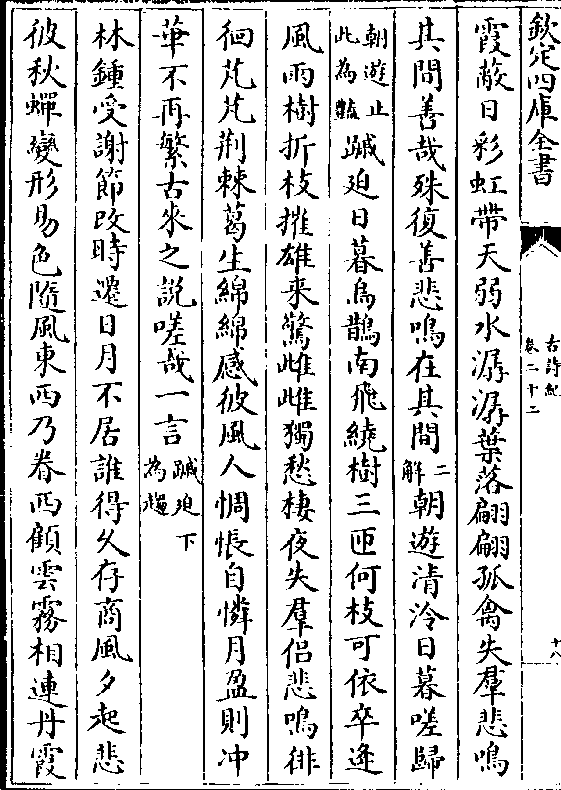 欽定四庫全書
古詩紀
卷二十二
十八
霞蔽日彩虹帶天弱水潺潺葉落翩翩孤禽失羣悲鳴
其間善哉殊復善悲鳴在其間二解朝遊清泠日暮嗟歸
朝遊止此為豔蹴迫日暮烏鵲南飛繞樹三匝何枝可依卒逢
風雨樹折枝摧雄来驚雌雌獨愁棲夜失羣侣悲鳴徘
徊芃芃荆棘葛生綿綿感彼風人惆悵自憐月盈則冲
華不再繁古來之說嗟哉一言蹴迫下為趨
林鍾受謝節改時遷日月不居誰得久存商風夕起悲
彼秋蟬變形易色隨風東西乃眷西顧雲霧相連丹霞